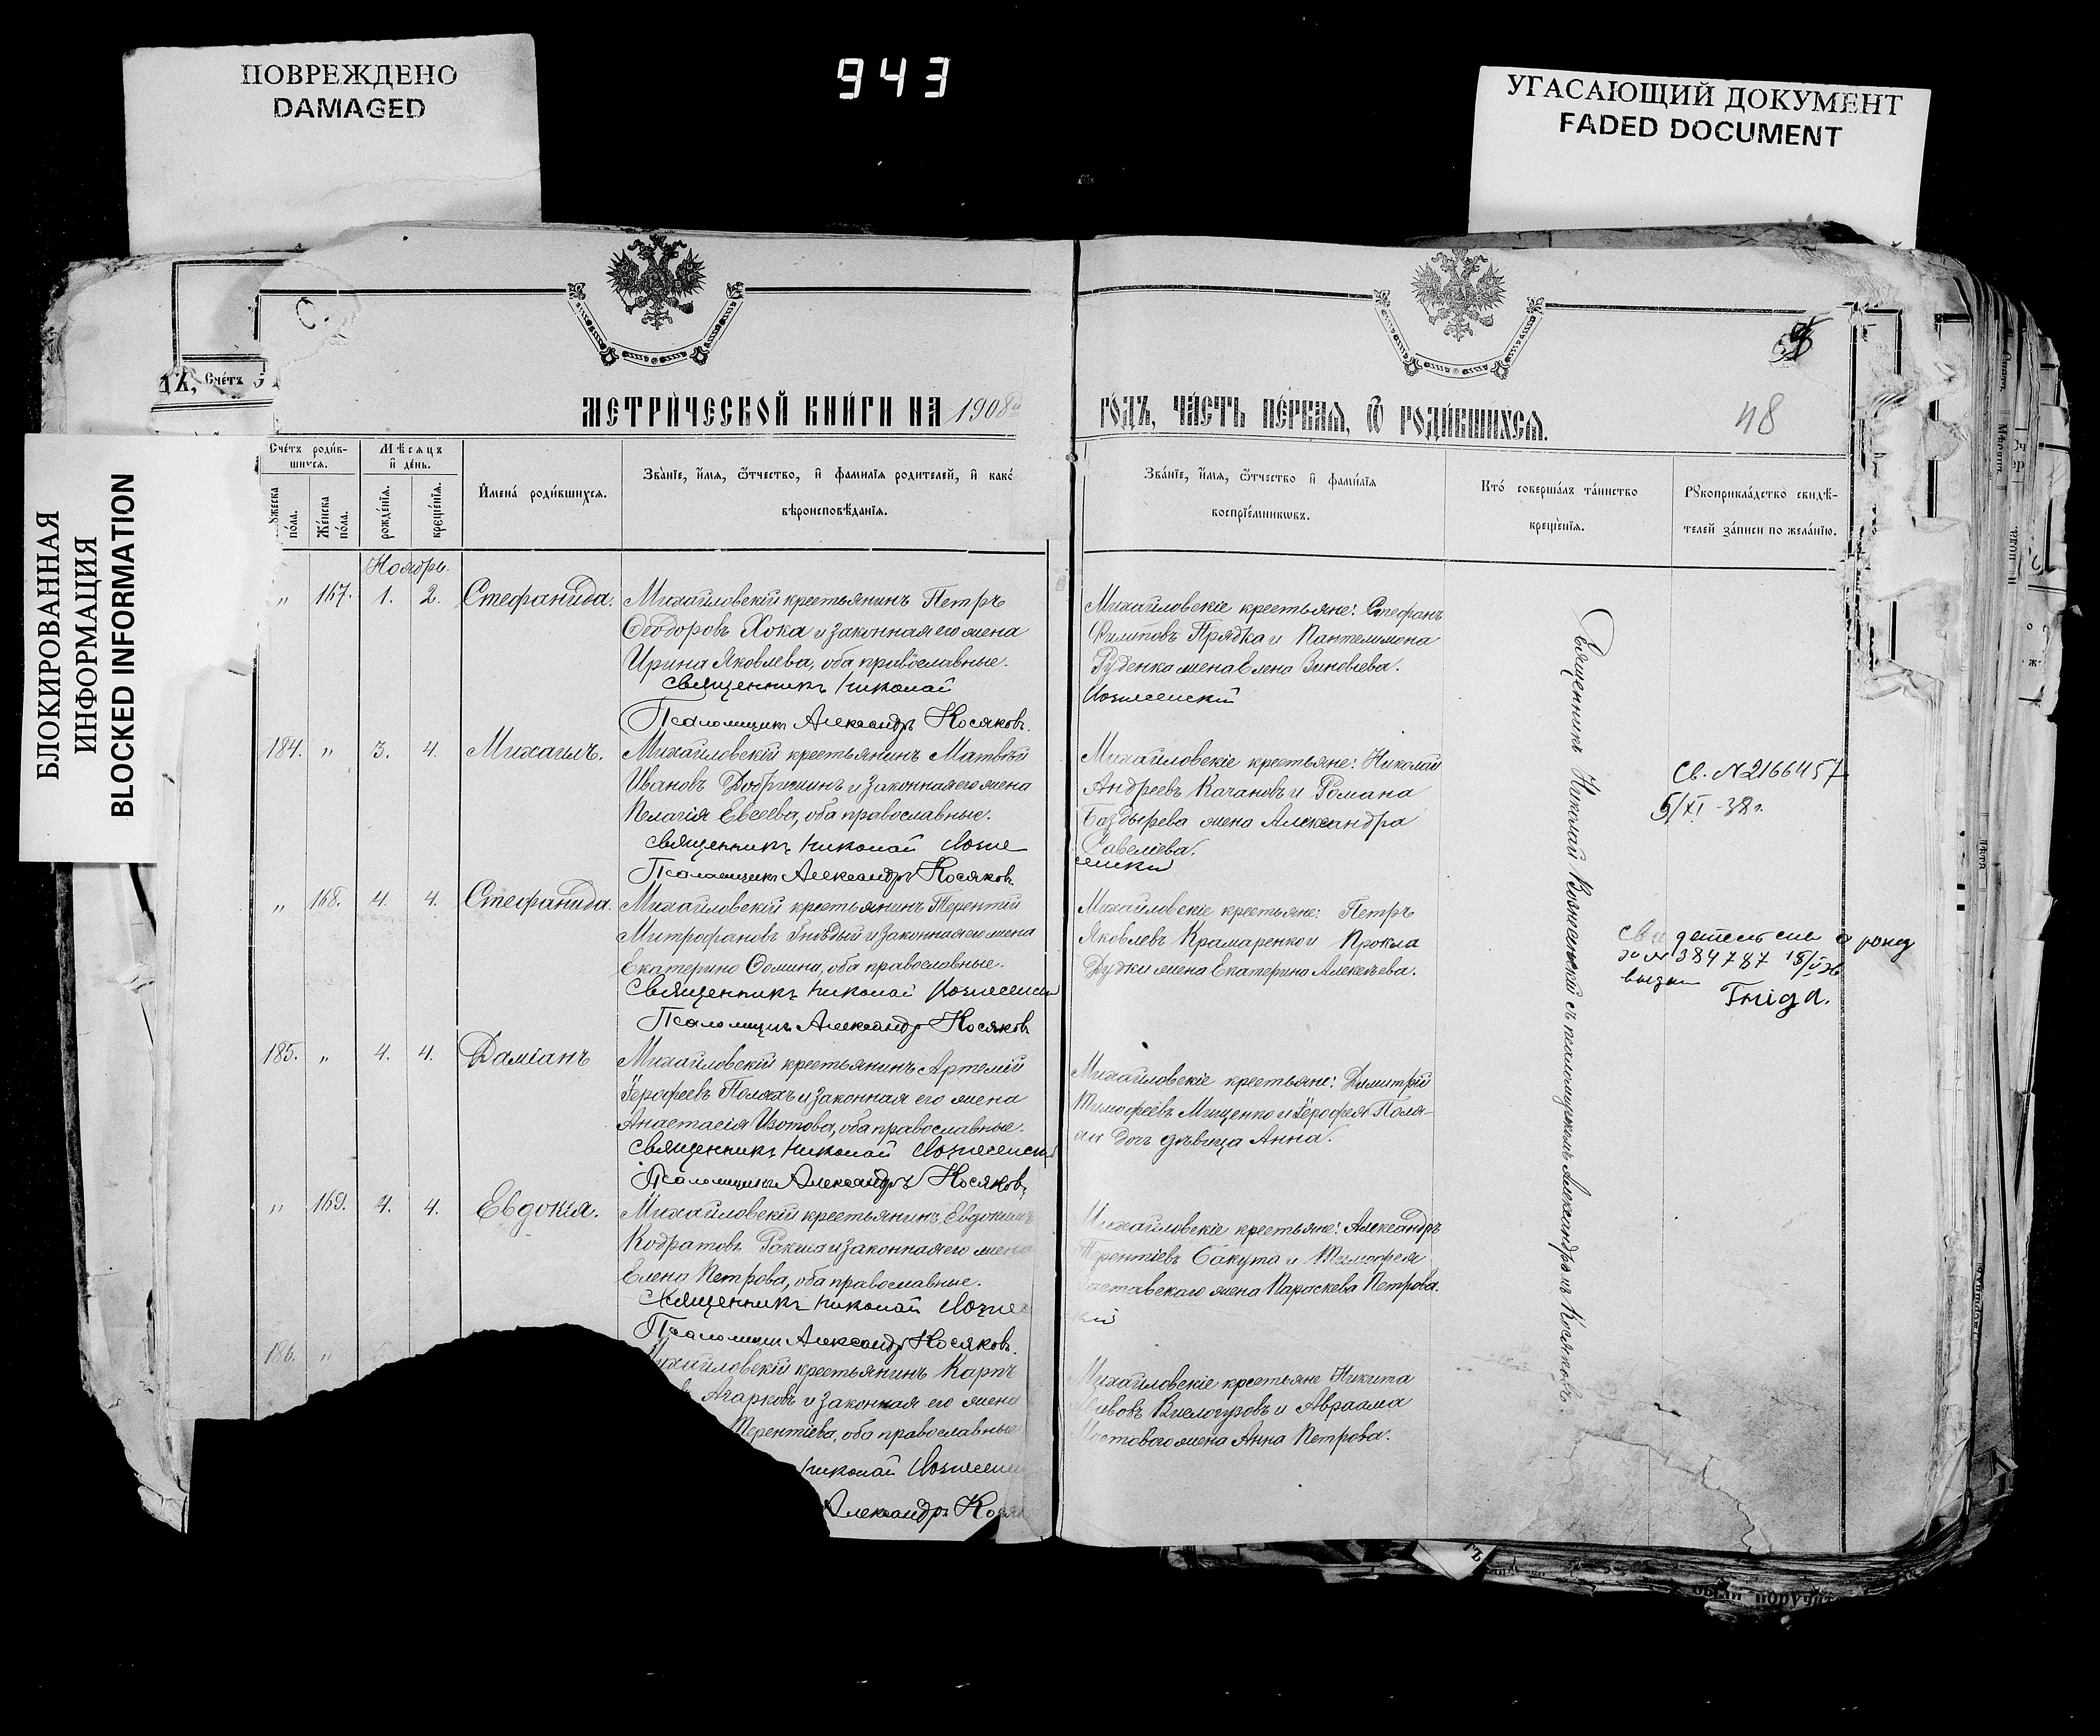 ПОВРЕЖДЕНО
DAMAGED
943
УГАСАЮЩИЙ ДОКУМЕНТ
FADED DOCUMENT
БЛОКИРОВАННАЯ
ИНФОРМАЦИЯ
BLOCKED INFORMATION
Счетъ
МЕТРИЧЕСКОЙ КНИГИ НА 1908й
ГОДЪ, ЧАСТЬ ПЕРВАЯ, Ѿ РОДИВШИХСЯ.
48
Счетъ родив-
шихся.
Мѣсяцъ
и день.
Имена родившихся.
Званіе, имя, ѿтчество, и фамилія родителей, и какого
вѣроисповѣданія.
Званіе, имя, ѿтчество и фамилія
воспріемниковъ.
Кто совершалъ таинство
крещенія.
Рукоприкладство свидѣ-
телей записи по желанію.
пола.
Женска
пола.
рожденія.
крещенія.
Ноябрь.
„ 167. 1. 2. Стефанида.
Михайловскій крестьянинъ Петръ
Ѳеодоровъ Хока и законная его жена
Ирина Яковлева, оба православные.
Священникъ Николай
Псаломщикъ Александръ Косяковъ.
Михайловскіе крестьяне: Стефанъ
Филиповъ Прядка и Пантелимона
Руденка жена Елена Зиновьева.
Вознесенскій
184. „ 3. 4. Михаилъ.
Михайловскій крестьянинъ Матвѣй
Ивановъ и законная его жена
Пелагія Евсеева, оба православные.
Священникъ Николай Возне
Псаломщикъ Александръ Косяковъ
Михайловскіе крестьяне: Николай
Андреевъ Качановъ и Романа
Баздырева жена Александра
Савеліева.
Св. N 2166457
5/XI-38г.
„ 168. 4. 4. Стефанида.
Михайловскій крестьянинъ Терентій
Митрофановъ Гнѣдый и законная его жена
Екатерина Ѳомина, оба православные.
Священникъ Николай Вознесенскій
Псаломщикъ Александръ Косяковъ
Михайловскіе крестьяне: Петръ
Яковлевъ Крамаренко и Прокла
Дудки жена Екатерина Алексѣева.
384787
185. „ 4. 4. Даміанъ
Михайловскій крестьянинъ Артемій
Іерофеевъ Поляхъ и законная его жена
Анастасія Изотова, оба православные.
Священникъ Николай Вознесенскій
Псаломщикъ Александръ Косяковъ
Михайловскіе крестьяне: Димитрій
Тимофеевъ Мищенко и Іерофея Поля-
дочь дѣвица Анна.
„ 169. 4. 4. Евдокія.
Михайловскій крестьянинъ Евдокимъ
Кодратовъ и законная его жена
Елена Петрова, оба православные.
Священникъ Николай Вознес
Псаломщикъ Александръ Косяковъ.
Михайловскіе крестьяне: Александръ
Терентіевъ Бакута и Тимофея
жена Параскева Петрова.
кій
186. „
Михайловскій крестьянинъ Карпъ
Агарковъ и законная его жена
Терентіева, оба православные
Николай Вознесен
Александръ Кося
Михайловскіе крестьяне Никита
Вислогузовъ и Авраама
Мостового жена Анна Петрова.
Священникъ Николай Вознесенскій съ псаломщикомъ Александромъ Косяковъ.